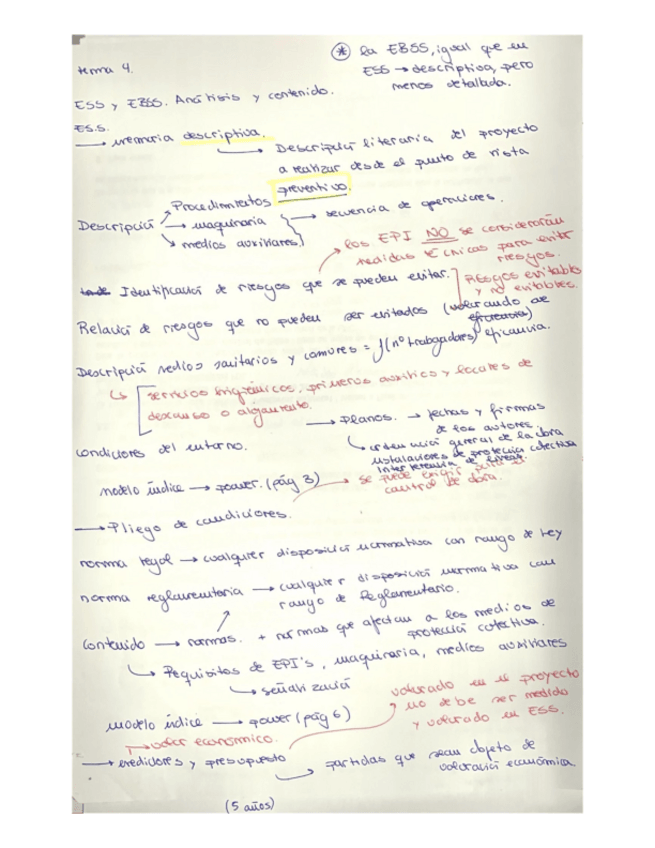 tema 4.
* la EBSS, igual que en
ESS → descriptiva, pero
menos detallada.
ESS y EBSS. Análisis y contenido.
E.S.S.
→ memoria descriptiva.
→ Descripción literaria del proyecto
a realizar desde el punto de vista
preventivo.
Descripción → Procedimientos
→ maquinaria
→ medios auxiliares
→ secuencia de operaciones.
los EPI NO se considerarán
medidas técnicas para evitar
riesgos.
Identificación de riesgos que se pueden evitar.
Riesgos evitables
y no evitables.
Relación de riesgos que no pueden ser evitados (valorando la
eficiencia)
Descripción medios sanitarios y comunes = f(nº trabajadores) eficiencia.
servicios higiénicos, primeros auxilios y locales de
descanso o alojamiento.
condiciones del entorno.
→ Planos. → fechas y firmas
de los autores.
→ ordenación general de la obra
instalaciones de protección colectiva
Interferencia de líneas.
modelo índice → power. (pág 3) → se puede exigir para el
control de obra.
→ Pliego de condiciones.
norma legal → cualquier disposición normativa con rango de ley
norma reglamentaria → cualquier disposición normativa con
rango de Reglamentario.
Contenido → normas. + normas que afectan a los medios de
protección colectiva.
→ Requisitos de EPI's, maquinaria, medios auxiliares
→ señalización
modelo índice → power (pág 6)
valorado en el proyecto
no debe ser medido
y valorado en ESS.
→ valor económico.
→ mediciones y presupuesto
→ partidas que sean objeto de
valoración económica
(5 años)